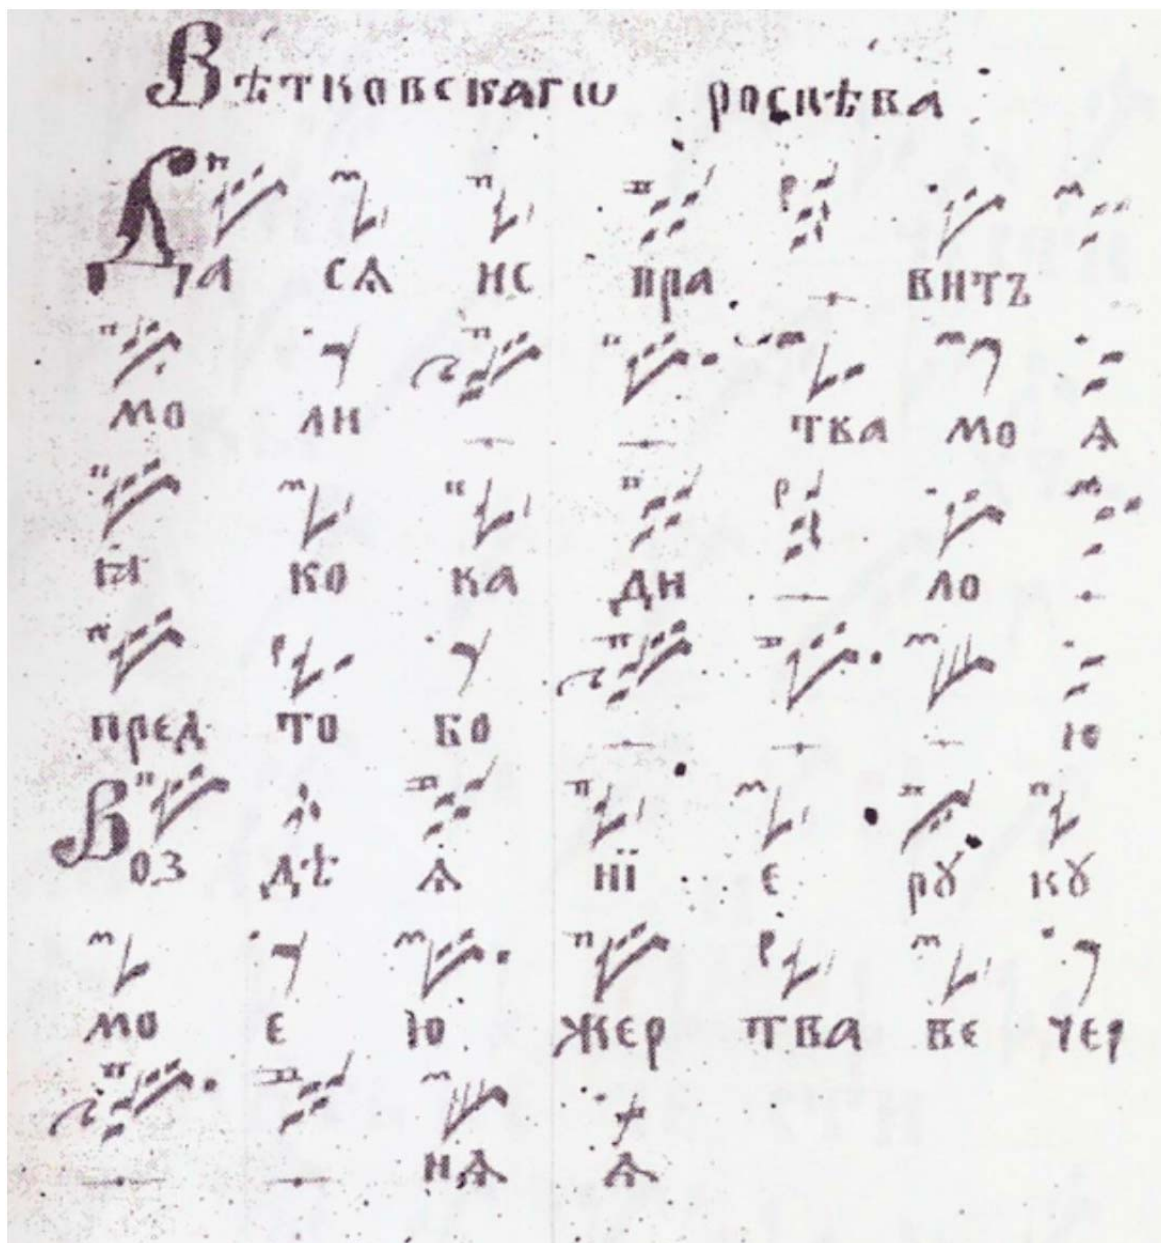 Вѣтковскагѡ роспѣва
Да сѧ ис пра витъ
мо ли тва мо ѧ
ꙗ ко ка ди ло
пред то бо ю
Воз дѣ ѧ нї е рꙋ кꙋ
мо е ю жер тва ве чер
нѧ ѧ